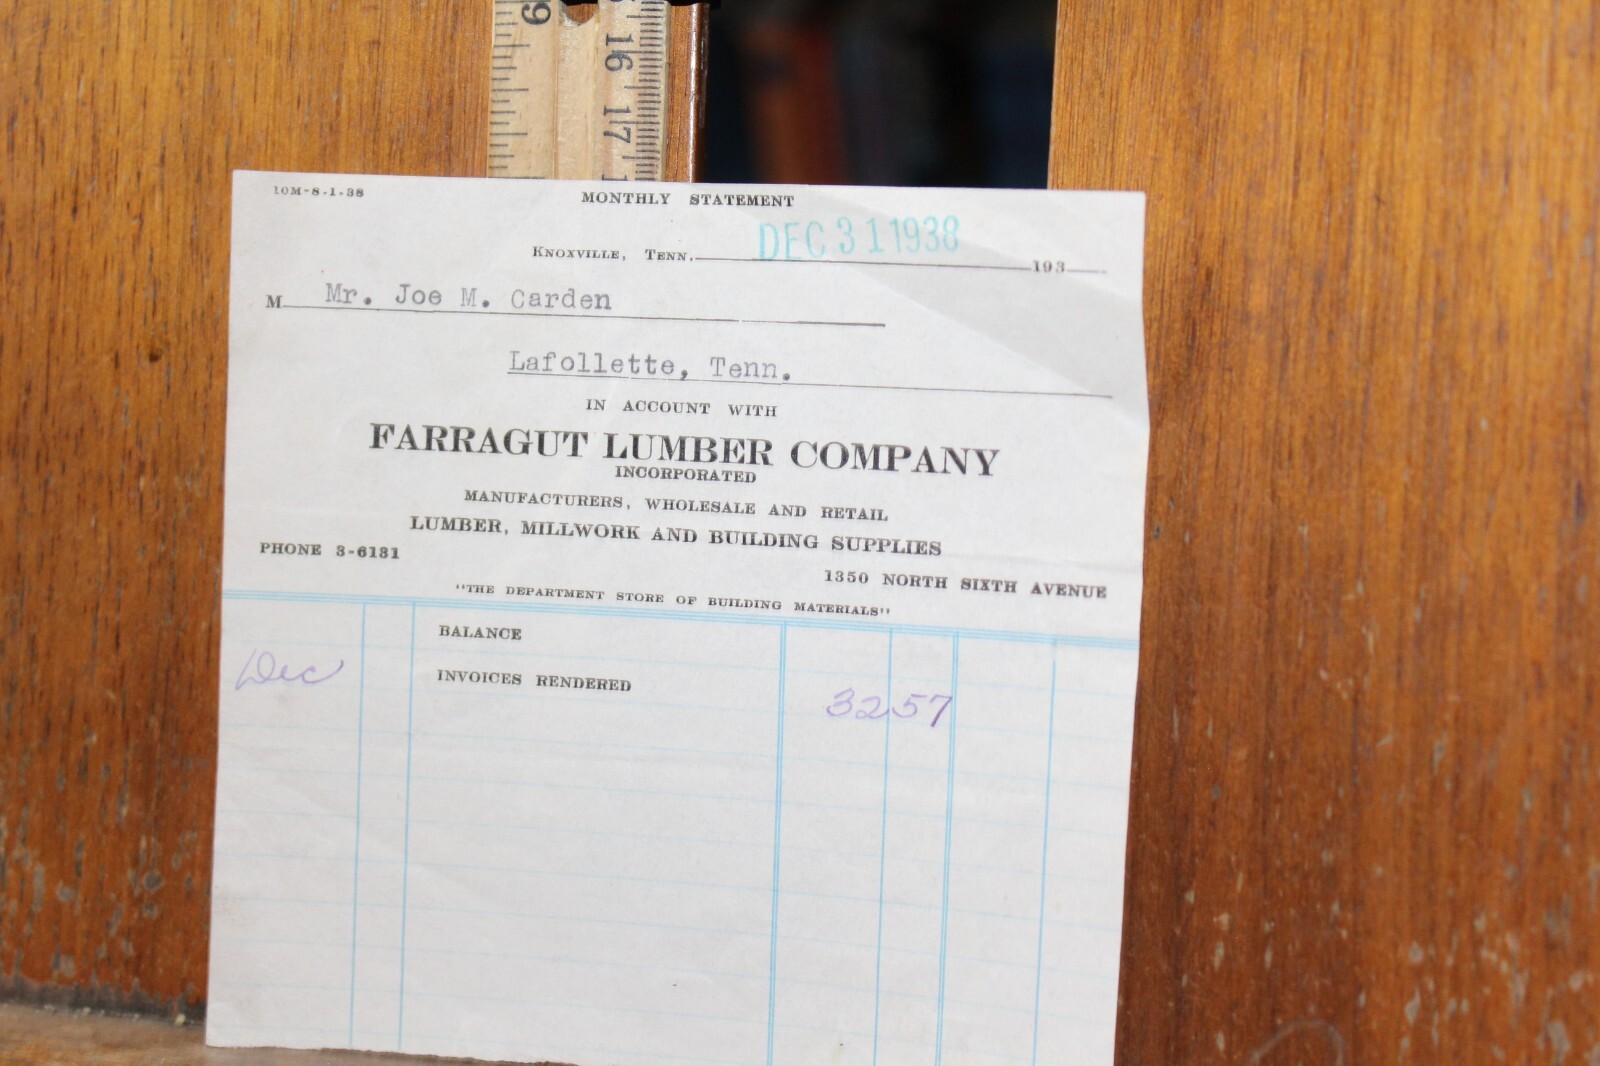 9 16 17
10M-8-1-38
MONTHLY STATEMENT
KNOXVILLE, TENN. DEC 31 1938 193
M Mr. Joe M. Carden
Lafollette, Tenn.
IN ACCOUNT WITH
FARRAGUT LUMBER COMPANY
INCORPORATED
MANUFACTURERS, WHOLESALE AND RETAIL
LUMBER, MILLWORK AND BUILDING SUPPLIES
PHONE 3-6131
1350 NORTH SIXTH AVENUE
"THE DEPARTMENT STORE OF BUILDING MATERIALS"
BALANCE
Dec INVOICES RENDERED 32 57